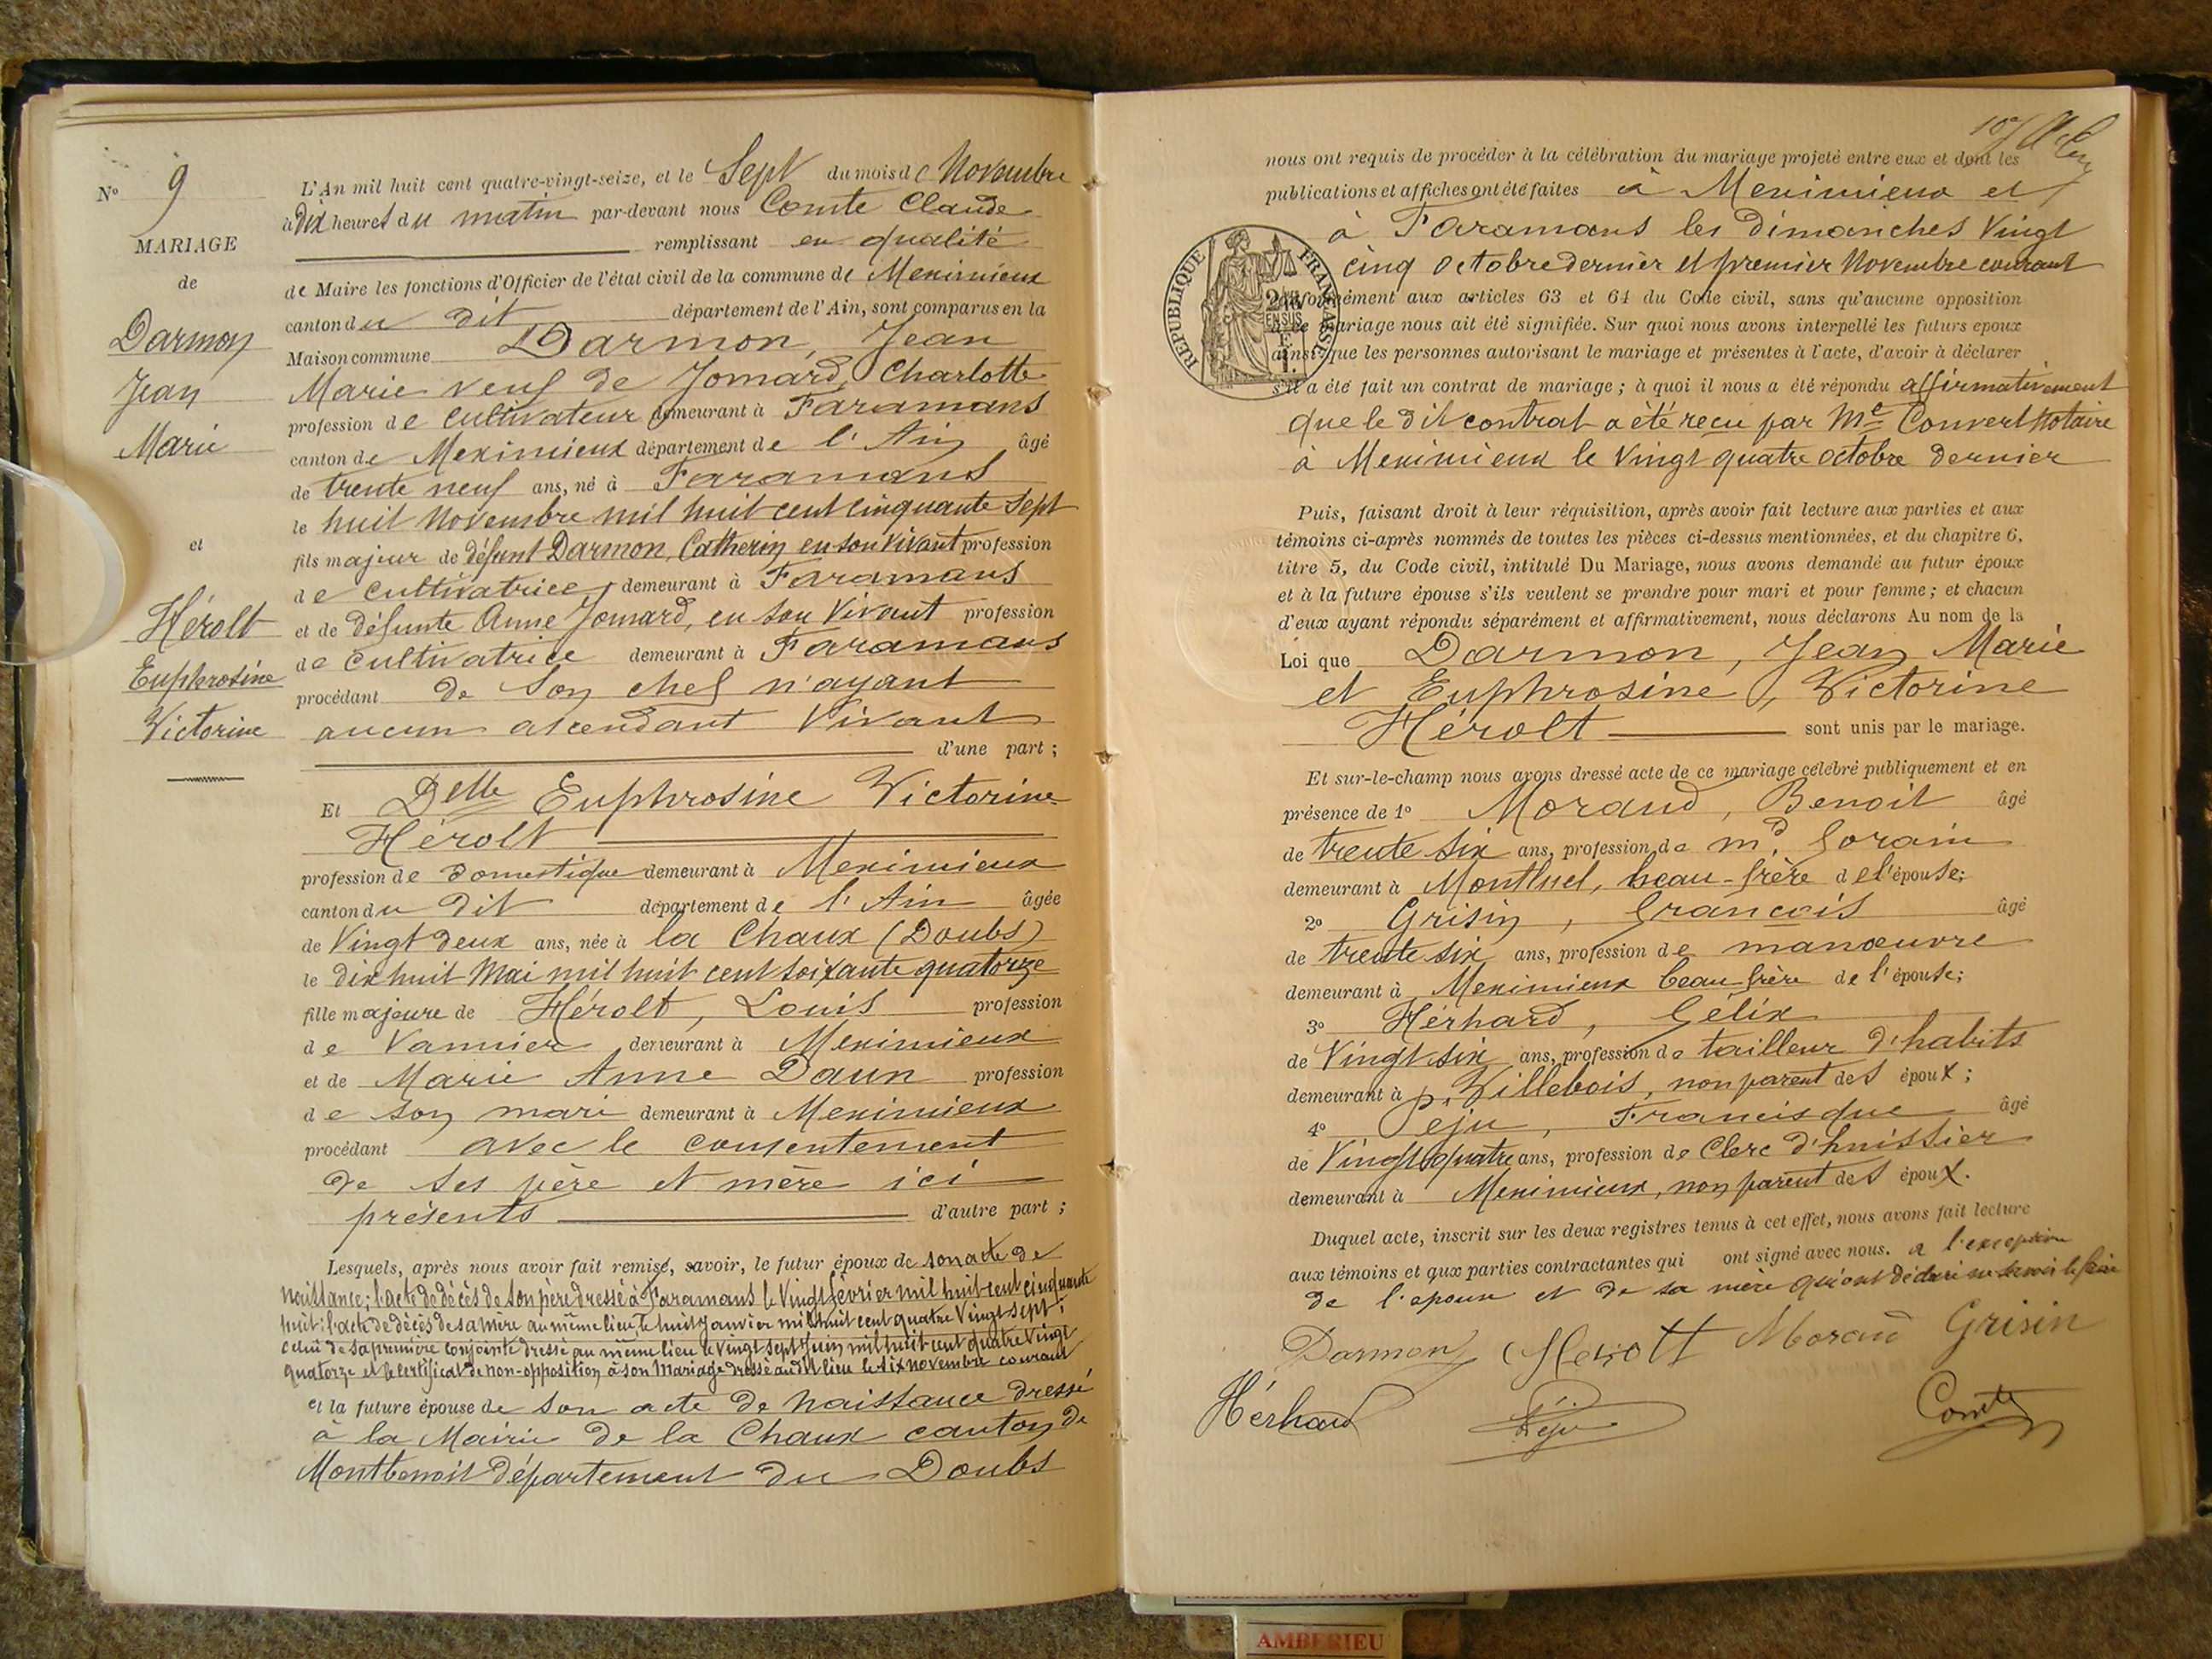 N° 9
MARIAGE
de
Darmon
Jean
Marie
et
Hérolt
Euphrosine
Victorine
L'An mil huit cent quatre-vingt-seize, et le Sept du mois de Novembre
à Dix heures du matin par-devant nous Comte Claude
remplissant en qualité
de Maire les fonctions d'Officier de l'état civil de la commune de Meximieux
canton du dit département de l'Ain, sont comparus en la
Maison commune Darmon, Jean
Marie veuf de Jomard, Charlotte
profession de cultivateur demeurant à Faramans
canton de Meximieux département de l'Ain âgé
de trente neuf ans, né à Faramans
le huit Novembre mil huit cent cinquante sept
fils majeur de défunt Darmon, Catherin en son vivant profession
de cultivatrice, demeurant à Faramans
et de défunte Anne Jomard, en son vivant profession
de cultivatrice demeurant à Faramans
procédant de son chef n'ayant
aucun ascendant vivant
d'une part ;
Et Delle Euphrosine Victorine
Hérolt
profession de domestique demeurant à Meximieux
canton du dit département de l'Ain âgée
de Vingt deux ans, née à la Chaux (Doubs)
le dix huit Mai mil huit cent soixante quatorze
fille majeure de Hérolt, Louis profession
de Vannier demeurant à Meximieux
et de Marie Anne Daun profession
de son mari demeurant à Meximieux
procédant avec le consentement
de ses père et mère ici
présents d'autre part ;
Lesquels, après nous avoir fait remise, savoir, le futur époux de son acte de
naissance ; l'acte de décès de son père dressé à Faramans le Vingt février mil huit cent cinquante
huit ; l'acte de décès de sa mère au même lieu, le huit janvier mil huit cent quatre Vingt sept ;
celui de sa première conjointe dressé au même lieu le vingt sept Juin mil huit cent quatre Vingt
quatorze et le certificat de non-opposition à son Mariage dressé audit lieu le six novembre courant
et la future épouse de son acte de naissance dressé
à la Mairie de la Chaux canton de
Montbenoit département du Doubs
nous ont requis de procéder à la célébration du mariage projeté entre eux et dont les
publications et affiches ont été faites à Meximieux et
à Faramans les dimanches Vingt
cinq octobre dernier et premier Novembre courant
conformément aux articles 63 et 64 du Code civil, sans qu'aucune opposition
à ce mariage nous ait été signifiée. Sur quoi nous avons interpellé les futurs epoux
ainsi que les personnes autorisant le mariage et présentes à l'acte, d'avoir à déclarer
s'il a été fait un contrat de mariage ; à quoi il nous a été répondu affirmativement
que le dit contrat a été reçu par Me Convert Notaire
à Meximieux le Vingt quatre octobre dernier
REPUBLIQUE FRANÇAISE
Puis, faisant droit à leur réquisition, après avoir fait lecture aux parties et aux
témoins ci-après nommés de toutes les pièces ci-dessus mentionnées, et du chapitre 6,
titre 5, du Code civil, intitulé Du Mariage, nous avons demandé au futur époux
et à la future épouse s'ils veulent se prendre pour mari et pour femme ; et chacun
d'eux ayant répondu séparément et affirmativement, nous déclarons Au nom de la
Loi que Darmon, Jean Marie
et Euphrosine, Victorine
Hérolt sont unis par le mariage.
Et sur-le-champ nous avons dressé acte de ce mariage célébré publiquement et en
présence de 1° Moraud, Benoit âgé
de trente six ans, profession de md forain
demeurant à Montluel, beau-frère de l'épouse ;
2° Grisin, François âgé
de trente six ans, profession de manœuvre
demeurant à Meximieux beau-frère de l'épouse ;
3° Hérhard, Félix
de Vingt six ans, profession de tailleur d'habits
demeurant à Villebois, non parent des époux ;
4° Péju, Francisque âgé
de Vingt quatre ans, profession de Clerc d'huissier
demeurant à Meximieux, non parent des époux.
Duquel acte, inscrit sur les deux registres tenus à cet effet, nous avons fait lecture
aux témoins et aux parties contractantes qui ont signé avec nous. à l'exception
de l'epoux et de sa mère qui ont déclaré ne savoir le faire
Darmon Herolt Moraud Grisin
Hérhard Péju Comte
AMBERIEU